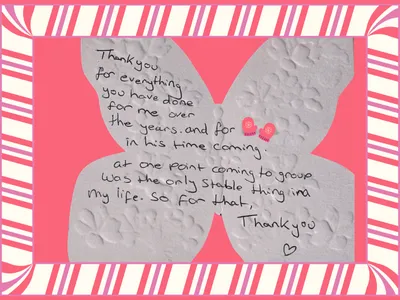 Thankyou
for everything
you have done
for me over
the years. and for
in his time coming.
at one point coming to group
was the only stable thing in
my life. So for that,
Thankyou